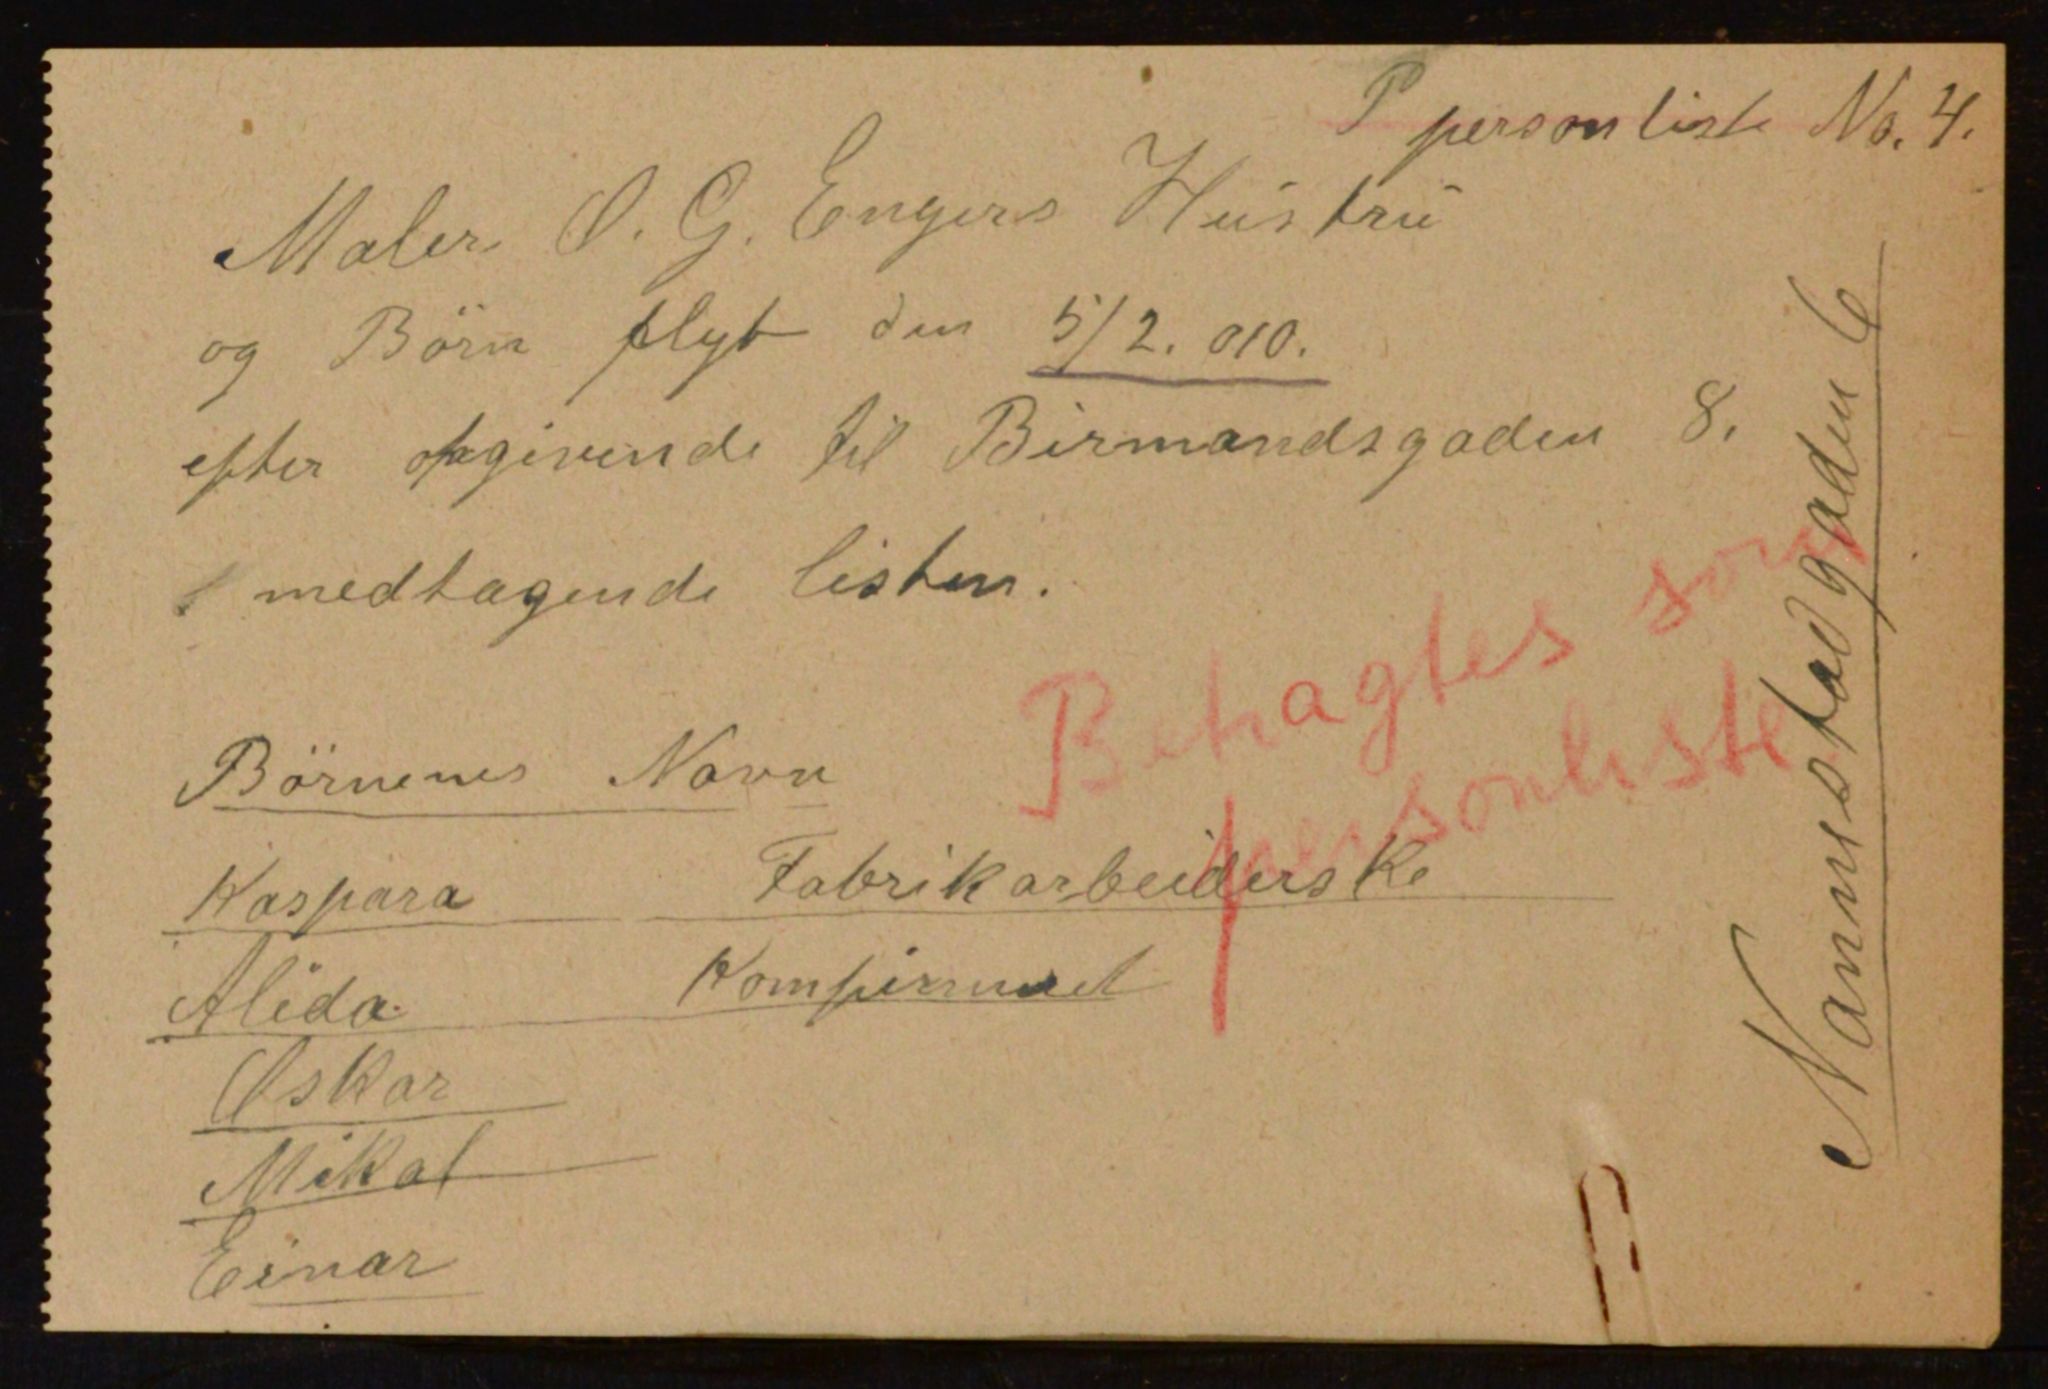 P personliste No. 4.
Maler O. G. Engers Hustru
og Börn flyt den 5/2. 010.
efter opgivende til Birmandsgaden 8.
medtagende listen.
Betragtes som
personliste
Börnenes Navn
Kaspara Fabrikarbeiderske
Alida
Oskar
Mikal
Einar
Nannestadgaden 6